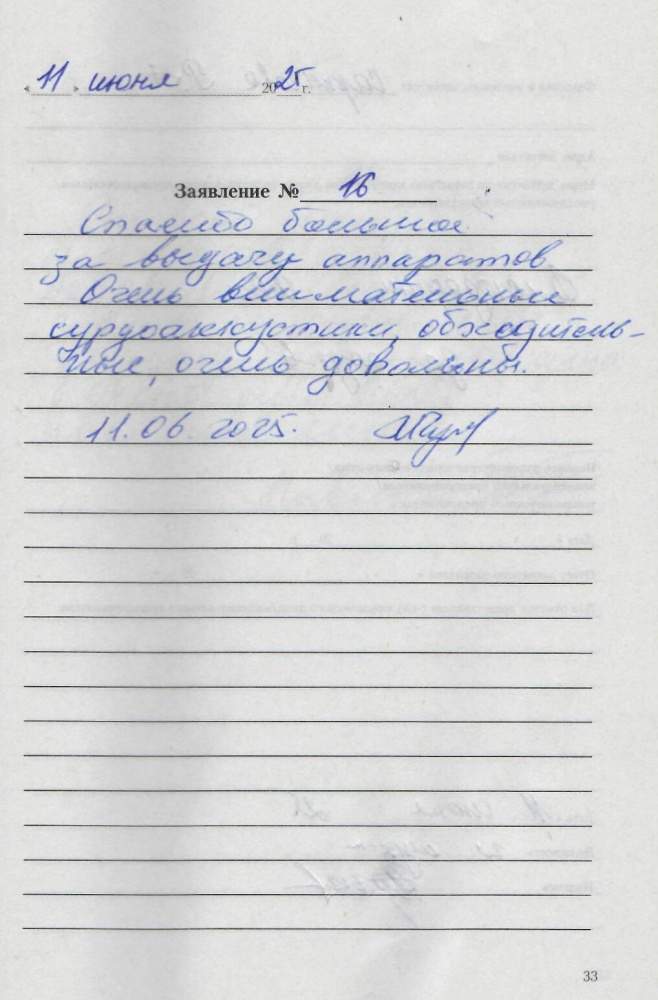 «11» июня 2025 г.
Заявление № 16
Спасибо большое
за выдачу аппаратов
Очень внимательные
сурдоаккустики, обходитель-
ные, очень довольны.
11.06.2025.
33